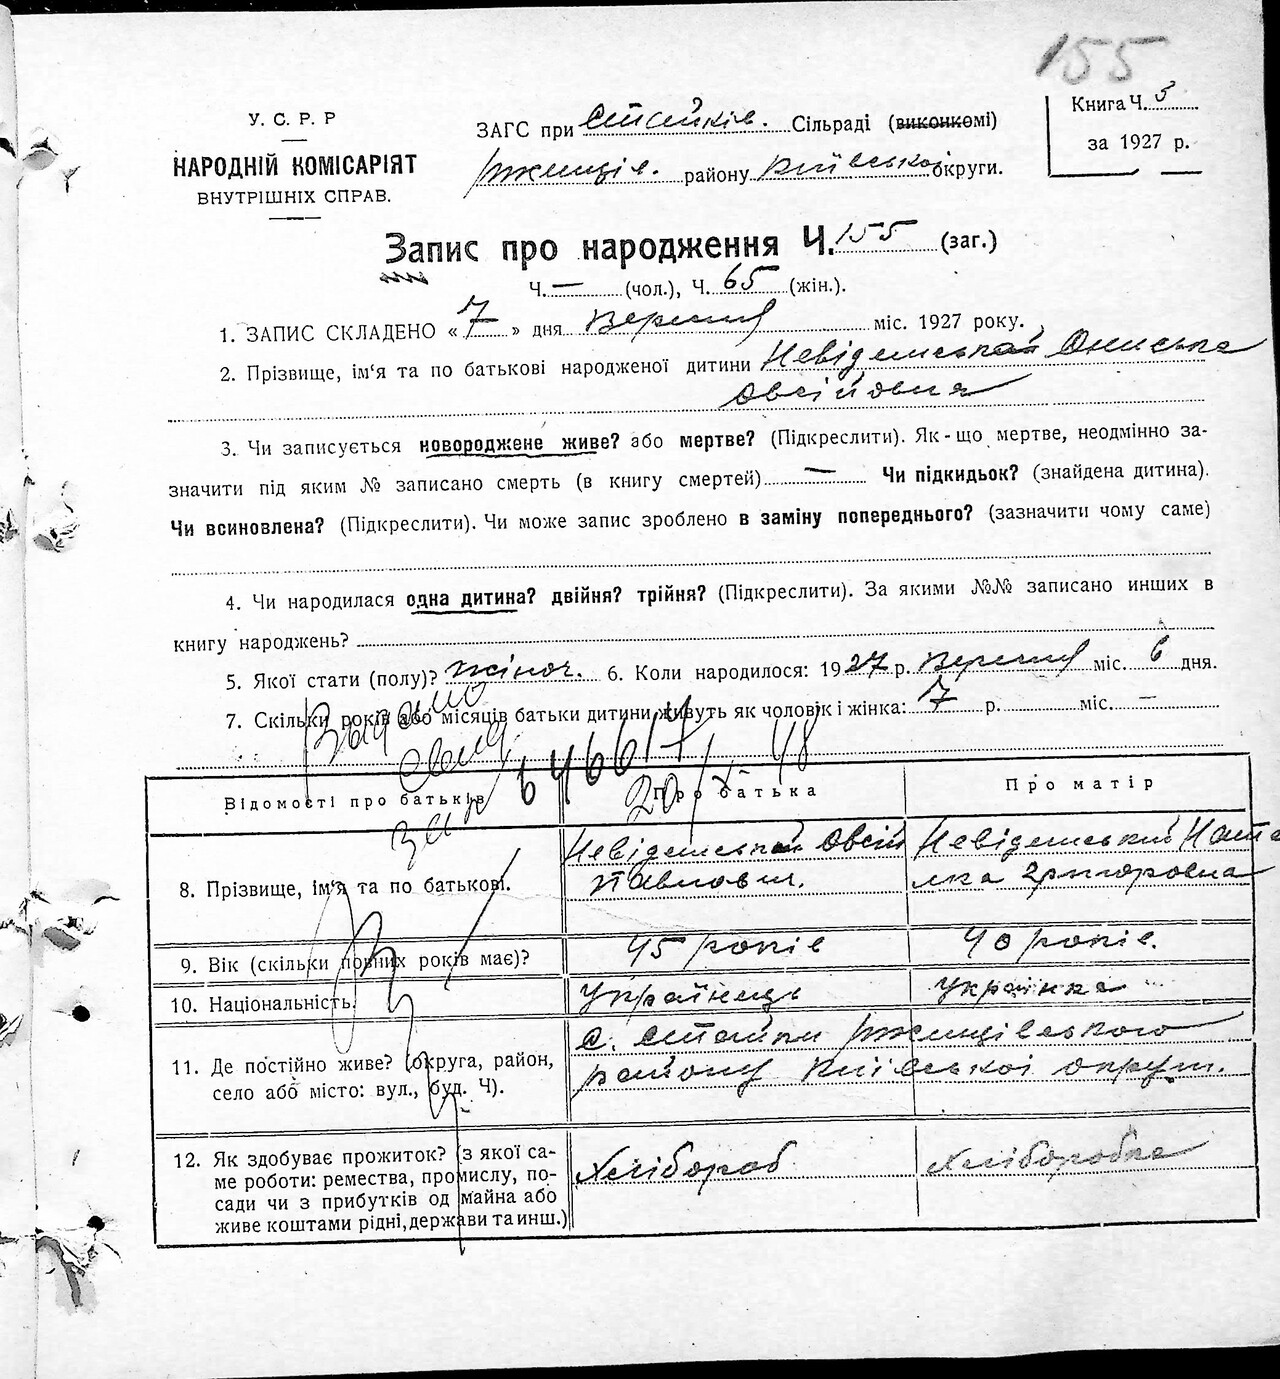 155
У. С. Р. Р
НАРОДНІЙ КОМІСАРІЯТ
ВНУТРІШНІХ СПРАВ.
Книга Ч. 3
за 1927 р.
ЗАГС при Стайків. Сільраді (виконкомі)
Ржищів. району Київської округи.
Запис про народження Ч. 155 (заг.)
Ч. — (чол.), Ч. 65 (жін.).
1. ЗАПИС СКЛАДЕНО « 7 » дня Вересня міс. 1927 року.
2. Прізвище, ім‘я та по батькові народженої дитини Ониська
Овсіївна
3. Чи записується новороджене живе? або мертве? (Підкреслити). Як-що мертве, неодмінно за-
значити під яким № записано смерть (в книгу смертей) — Чи підкидьок? (знайдена дитина).
Чи всиновлена? (Підкреслити). Чи може запис зроблено в заміну попереднього? (зазначити чому саме)
4. Чи народилася одна дитина? двійня? трійня? (Підкреслити). За якими №№ записано инших в
книгу народжень?
5. Якої стати (полу)? жіноч. 6. Коли народилося: 1927 р. Вересня міс. 6 дня.
7. Скільки років або місяців батьки дитини живуть як чоловік і жінка: 7 р. міс. —
Відомості про батьків
Про батька
Про матір
8. Прізвище, ім‘я та по батькові.
Овсій
Павлович.
Невідемський Ната
лка Григоровна
9. Вік (скільки повних років має)?
45 років
40 років.
10. Національність.
Українець
Українка
11. Де постійно живе? (округа, район,
село або місто: вул., буд. Ч).
С. Стайки Ржищівського
району Київської округи.
12. Як здобуває прожиток? (з якої са-
ме роботи: ремества, промислу, по-
сади чи з прибутків од майна або
живе коштами рідні, держави та инш.)
Хлібороб
Хліборобка